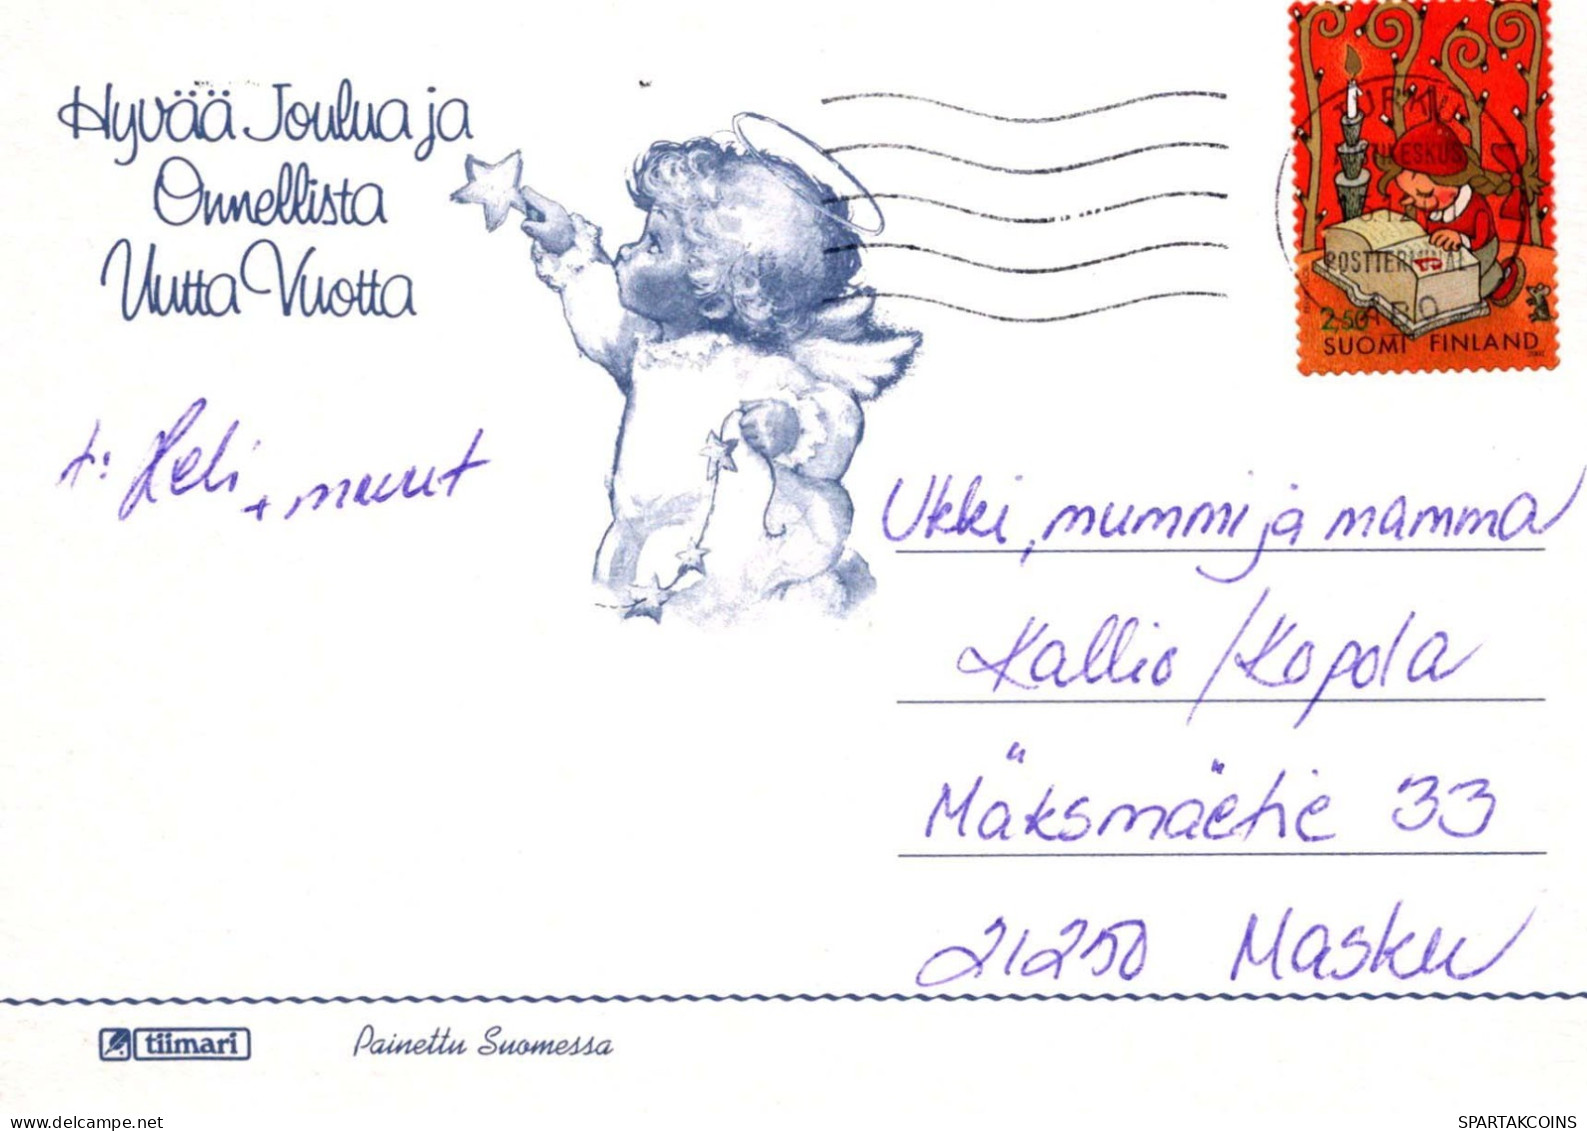 Hyvää Joulua ja
Onnellista
Uutta Vuotta
TURKU
POSTITERMINAL
2,50
SUOMI FINLAND
t: Heli + muut
Ukki, mummi ja mamma
Kallio/Kopola
Mäksmäetie 33
21250 Masku
tiimari
Painettu Suomessa
www.delcampe.net
SPARTAKCOINS